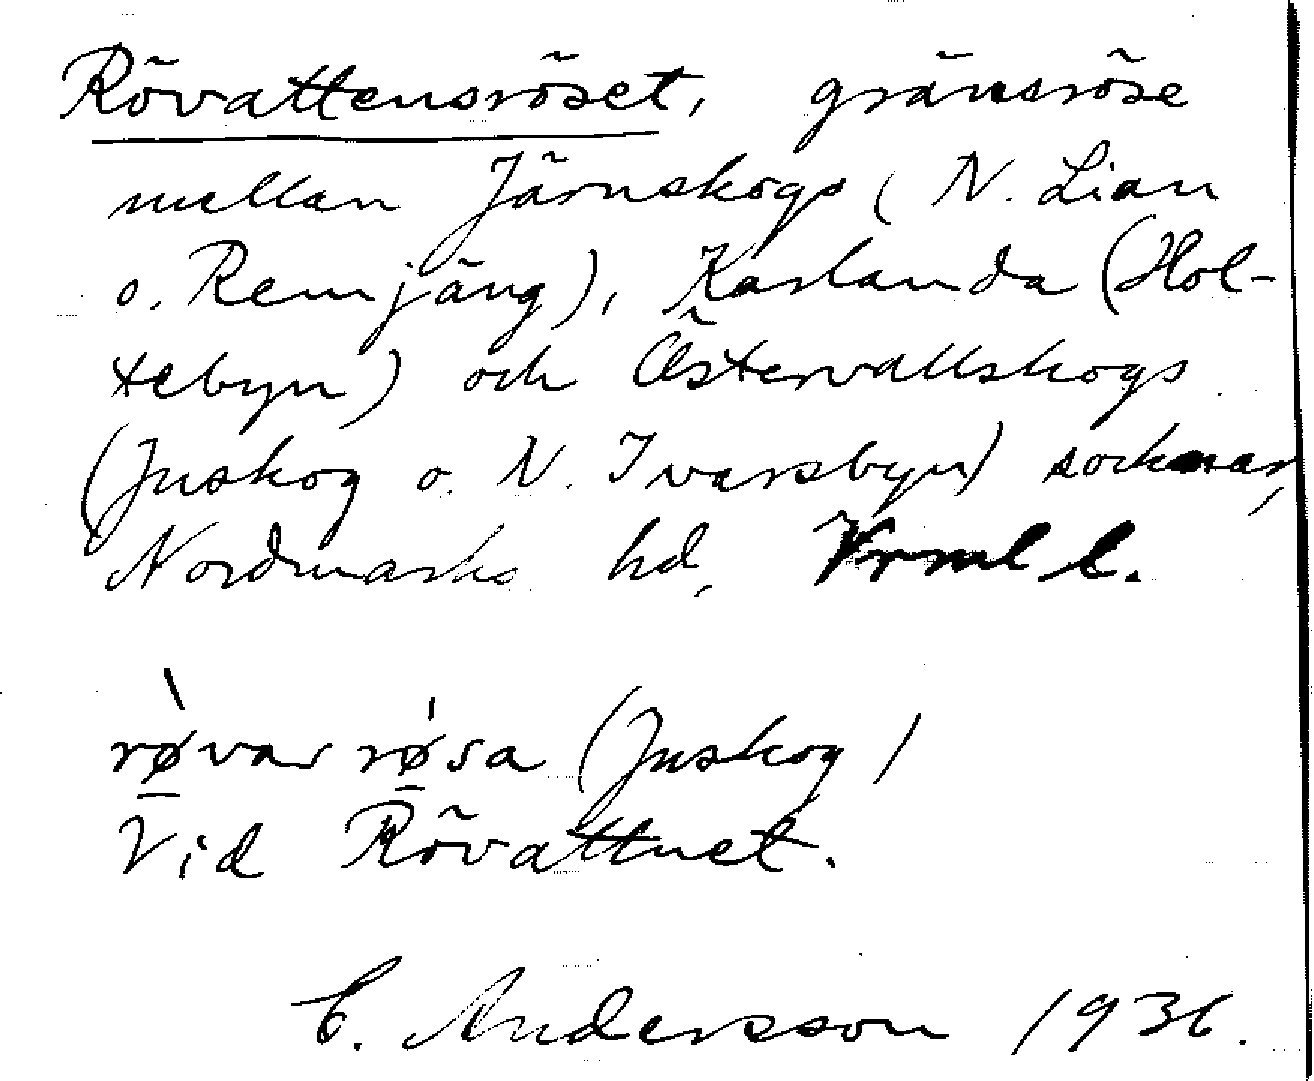 Rövattensröset, gränsröse
mellan Järnskogs (N. Lian
o. Remjäng), Karlanda (Hol-
tebyn) och Östervallskogs
(Juskog o. N. Ivarsbyn) socknar,
Nordmarks hd, Vrml l.
rø̀var rǿsa (Juskog)
Vid Rövattnet.
C. Andersson 1936.